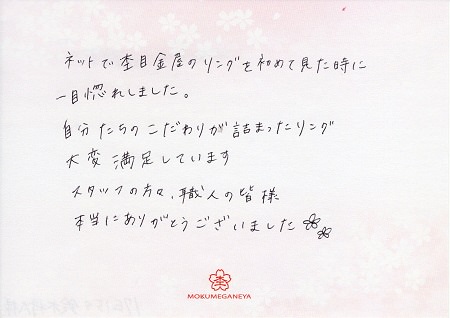 ネットで杢目金屋のリングを初めて見た時に
一目惚れしました。
自分たちのこだわりが詰まったリング
大変満足しています
スタッフの方々、職人の皆様
本当にありがとうございました
杢
MOKUMEGANEYA